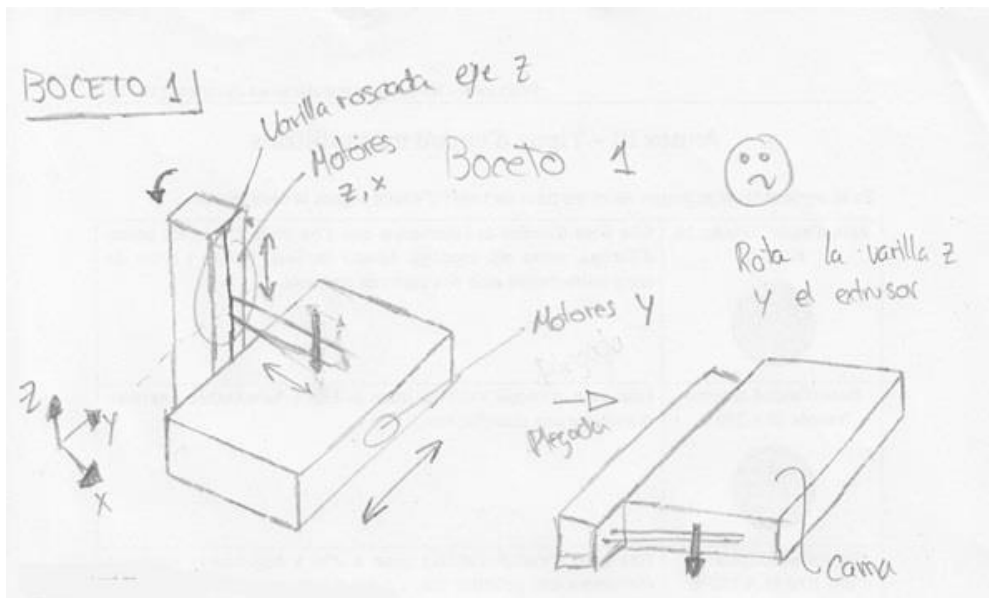 BOCETO 1
Varilla roscada eje Z
Motores
Z, X
Boceto 1
Rota la varilla Z
y el extrusor
Motores Y
Plegada
Z
Y
X
Cama